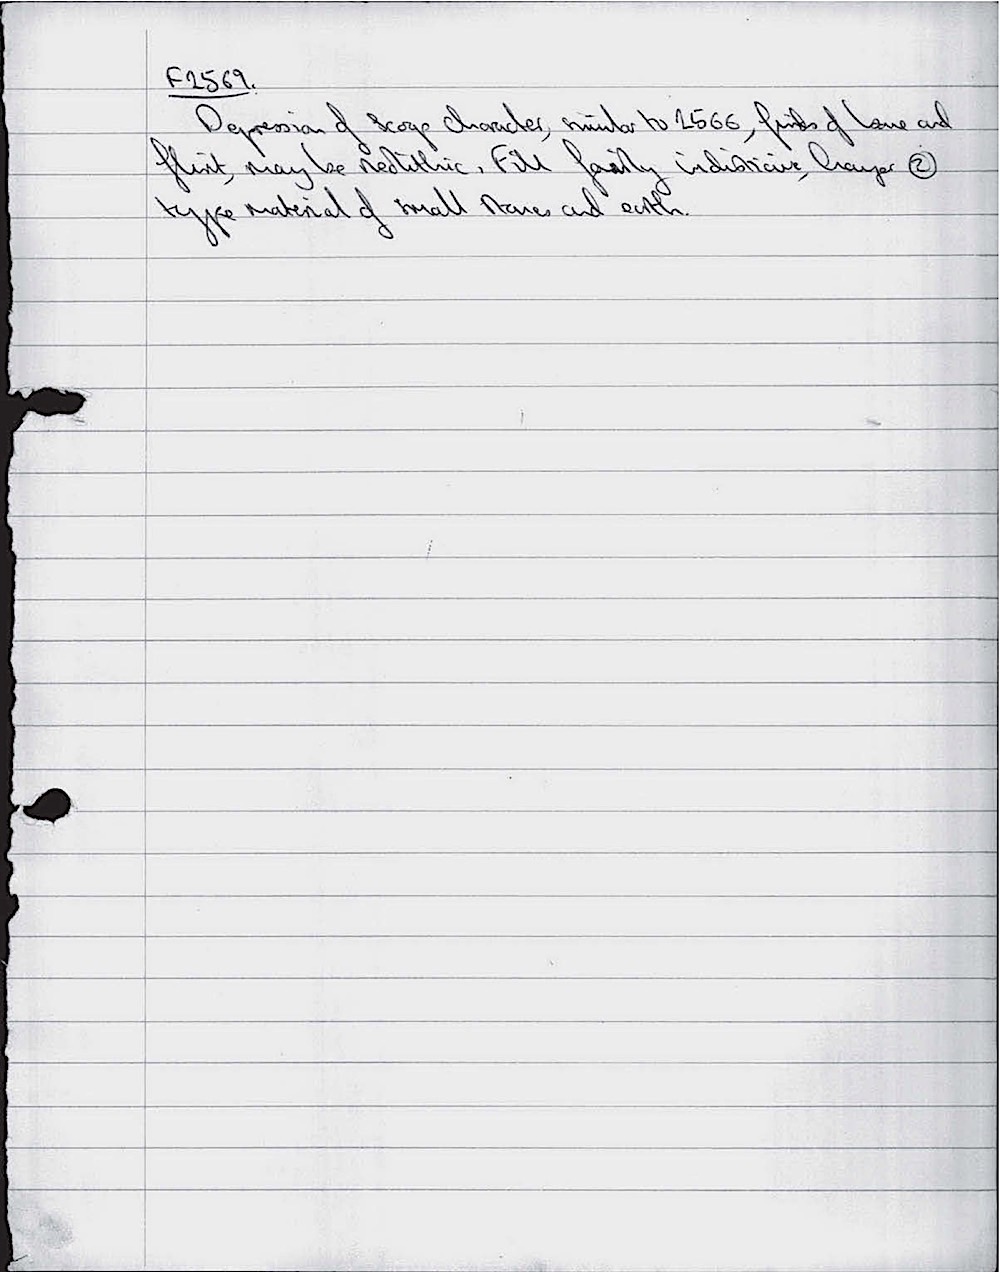 F2569.
Depression of scoop character, similar to 2566, finds of bone and
flint, may be neolithic. Fill fairly indistinctive, layer ②
type material of small stones and earth.